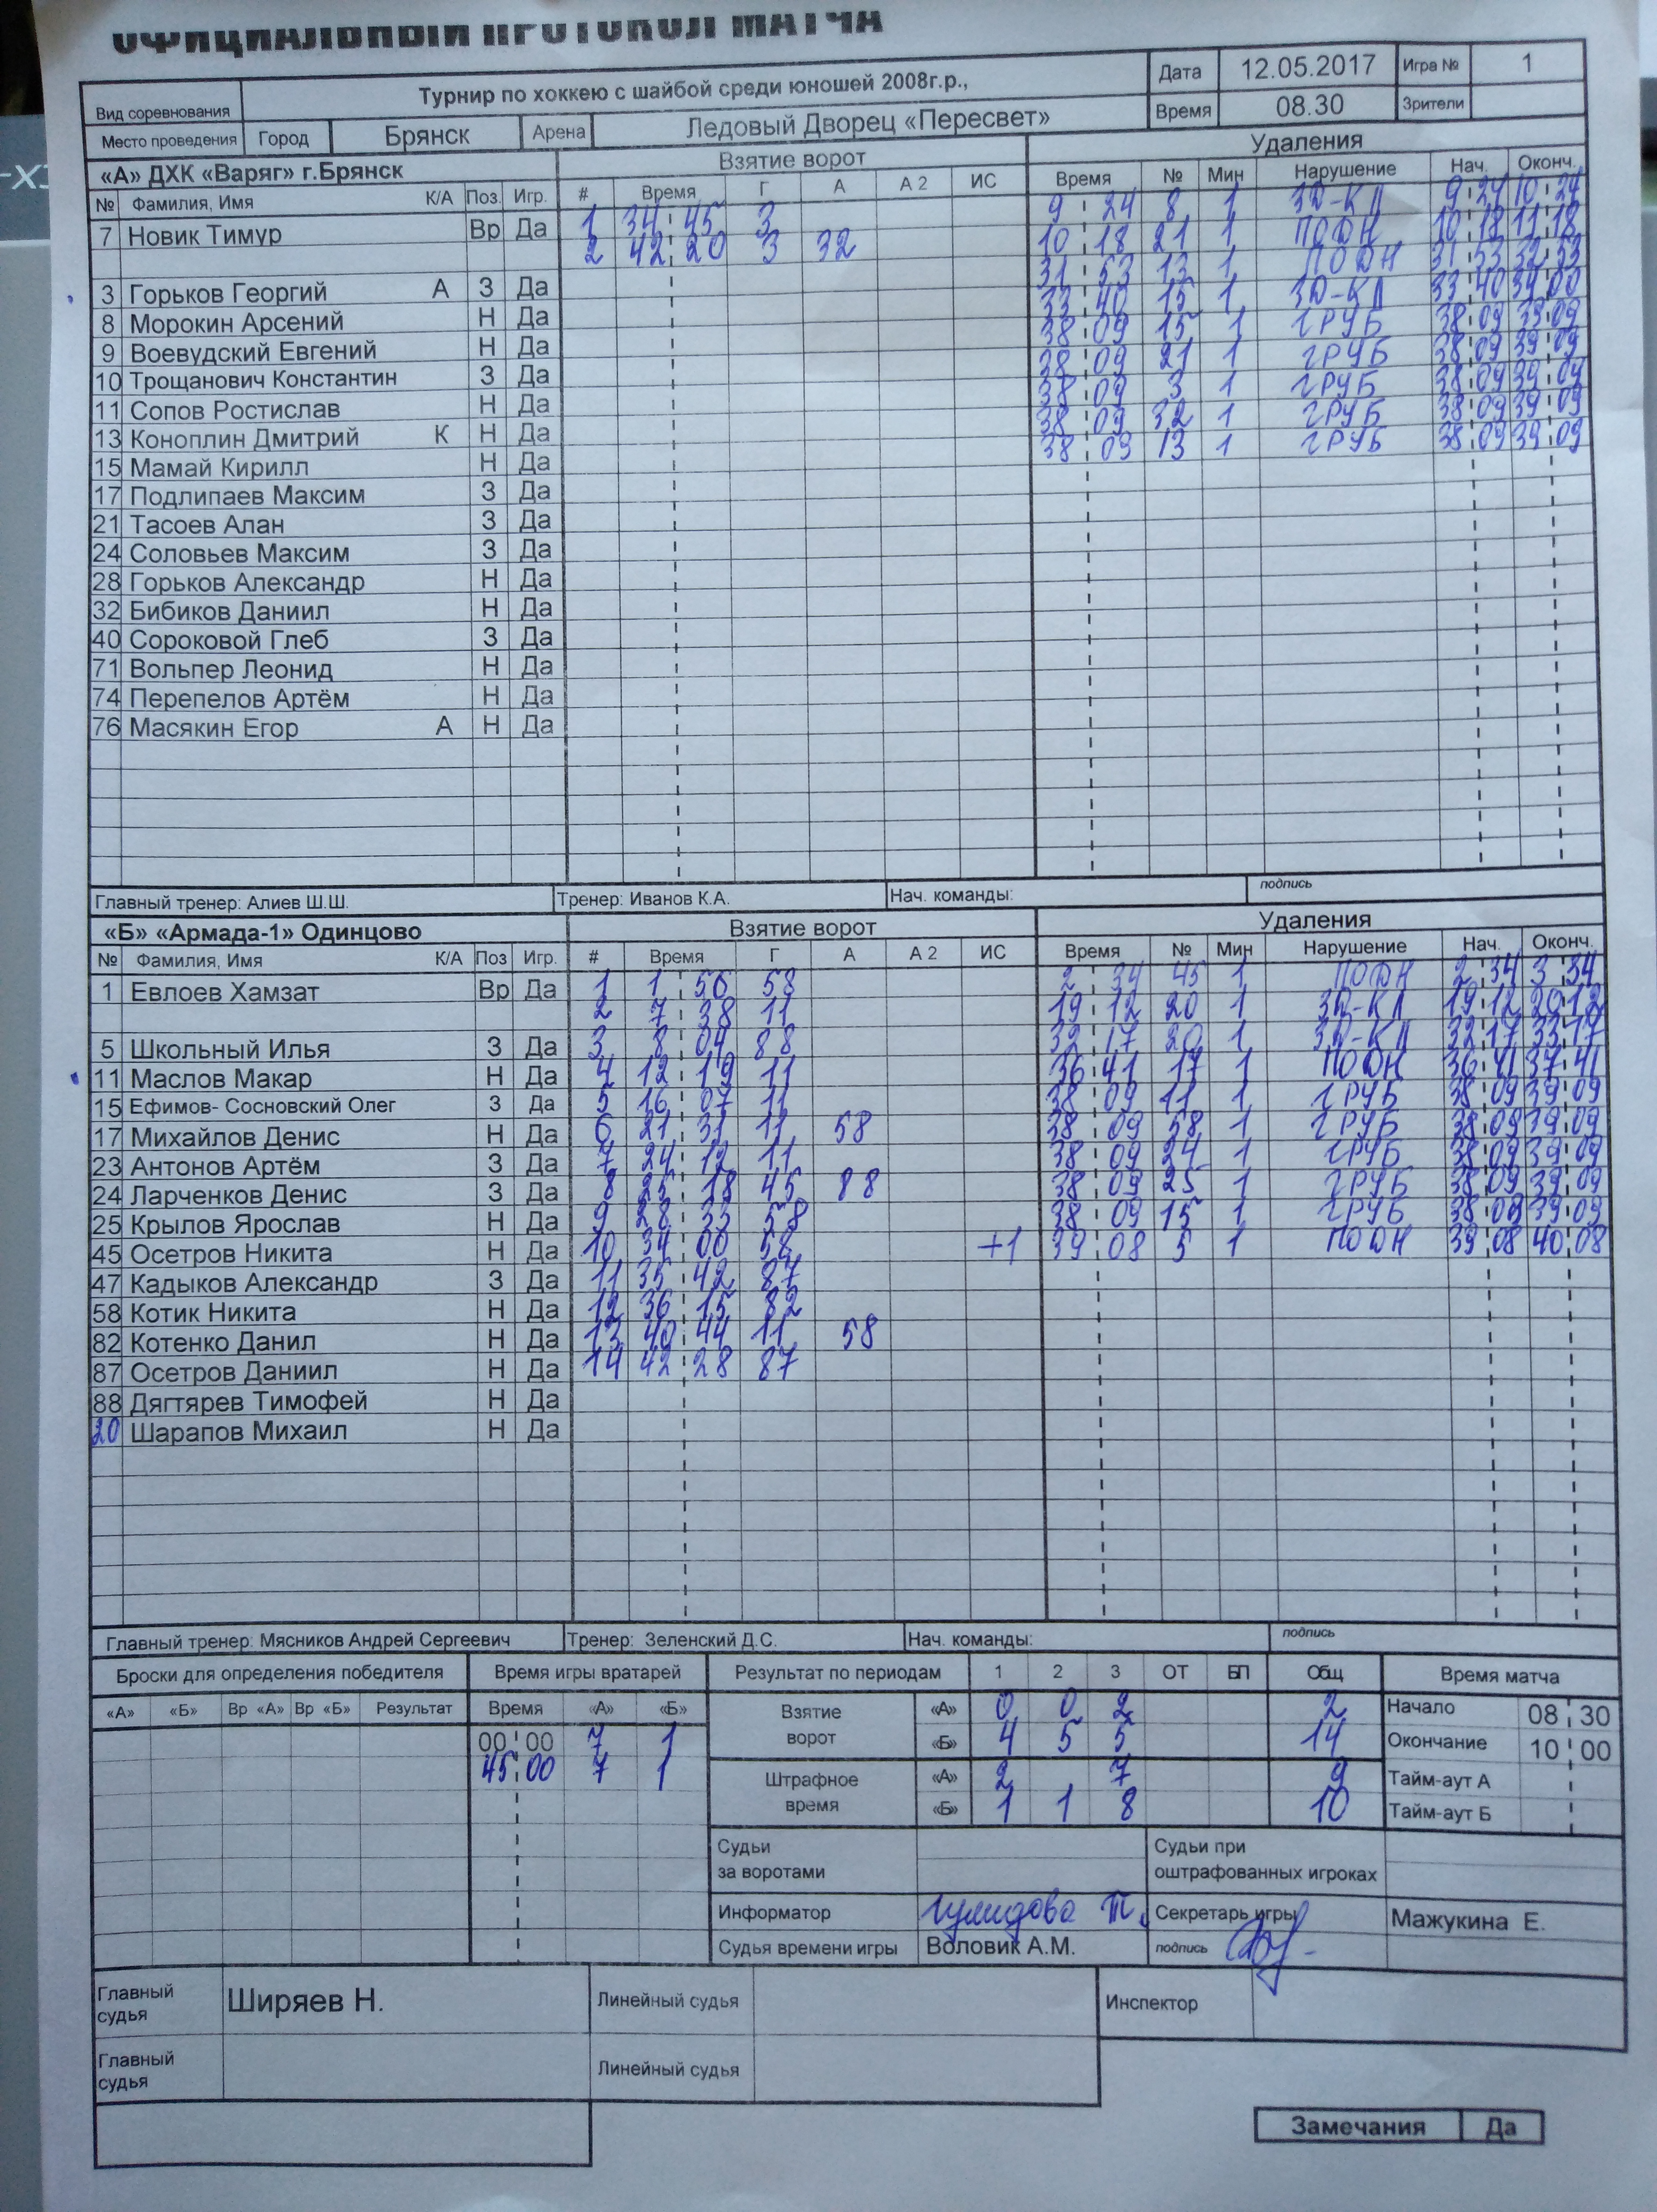 ОФИЦИАЛЬНЫЙ ПРОТОКОЛ МАТЧА
Вид соревнования Турнир по хоккею с шайбой среди юношей 2008г.р., Дата 12.05.2017 Игра № 1
Место проведения Город Брянск Арена Ледовый Дворец «Пересвет» Время 08.30 Зрители
«А» ДХК «Варяг» г.Брянск Взятие ворот Удаления
№ Фамилия, Имя К/А Поз. Игр. # Время Г А А 2 ИС Время № Мин Нарушение Нач. Оконч.
7 Новик Тимур Вр Да
3 Горьков Георгий А З Да
8 Морокин Арсений Н Да
9 Воевудский Евгений Н Да
10 Трощанович Константин З Да
11 Сопов Ростислав Н Да
13 Коноплин Дмитрий К Н Да
15 Мамай Кирилл Н Да
17 Подлипаев Максим З Да
21 Тасоев Алан З Да
24 Соловьев Максим З Да
28 Горьков Александр Н Да
32 Бибиков Даниил Н Да
40 Сороковой Глеб З Да
71 Вольпер Леонид Н Да
74 Перепелов Артём Н Да
76 Масякин Егор А Н Да
1 34 45 3
2 42 20 3 32
9 24 8 1 ЗД-КЛ 9 24 10 24
10 18 21 1 ПОДН 10 18 11 18
31 53 13 1 ПОДН 31 53 32 53
33 40 15 1 ЗД-КЛ 33 40 34 00
38 09 15 1 ГРУБ 38 09 39 09
38 09 21 1 ГРУБ 38 09 39 09
38 09 3 1 ГРУБ 38 09 39 09
38 09 32 1 ГРУБ 38 09 39 09
38 09 13 1 ГРУБ 38 09 39 09
Главный тренер: Алиев Ш.Ш. Тренер: Иванов К.А. Нач. команды: подпись
«Б» «Армада-1» Одинцово Взятие ворот Удаления
№ Фамилия, Имя К/А Поз Игр. # Время Г А А 2 ИС Время № Мин Нарушение Нач. Оконч.
1 Евлоев Хамзат Вр Да
5 Школьный Илья З Да
11 Маслов Макар Н Да
15 Ефимов- Сосновский Олег З Да
17 Михайлов Денис Н Да
23 Антонов Артём З Да
24 Ларченков Денис З Да
25 Крылов Ярослав Н Да
45 Осетров Никита Н Да
47 Кадыков Александр З Да
58 Котик Никита Н Да
82 Котенко Данил Н Да
87 Осетров Даниил Н Да
88 Дягтярев Тимофей Н Да
20 Шарапов Михаил Н Да
1 1 56 58
2 7 38 11
3 8 04 88
4 12 19 11
5 16 07 11
6 21 31 11 58
7 24 12 11
8 25 18 45 88
9 28 33 58
10 34 00 58 +1
11 35 42 87
12 36 15 82
13 40 44 11 58
14 42 28 87
2 34 45 1 ПОДН 2 34 3 34
19 12 20 1 ЗД-КЛ 19 12 20 12
32 17 20 1 ЗД-КЛ 32 17 33 17
36 41 17 1 ПОДН 36 41 37 41
38 09 11 1 ГРУБ 38 09 39 09
38 09 58 1 ГРУБ 38 09 39 09
38 09 24 1 ГРУБ 38 09 39 09
38 09 25 1 ГРУБ 38 09 39 09
38 09 15 1 ГРУБ 38 09 39 09
39 08 5 1 ПОДН 39 08 40 08
Главный тренер: Мясников Андрей Сергеевич Тренер: Зеленский Д.С. Нач. команды: подпись
Броски для определения победителя Время игры вратарей Результат по периодам 1 2 3 ОТ БП Общ Время матча
«А» «Б» Вр «А» Вр «Б» Результат Время «А» «Б»
00 00 7 1
45 00 7 1
Взятие ворот «А» 0 0 2 2
«Б» 4 5 5 14
Штрафное время «А» 2 7 9
«Б» 1 1 8 10
Начало 08 30
Окончание 10 00
Тайм-аут А
Тайм-аут Б
Судьи за воротами Судьи при оштрафованных игроках
Информатор Гулидова Т. Секретарь игры Мажукина Е.
Судья времени игры Воловик А.М. подпись
Главный судья Ширяев Н. Линейный судья Инспектор
Главный судья Линейный судья
Замечания Да